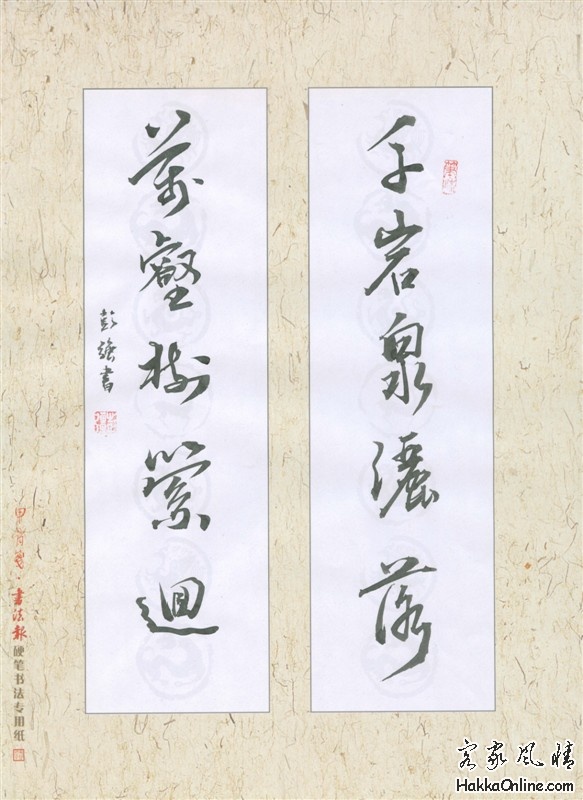 千岩泉灑落
萬壑樹縈迴
彭強書
書法報硬笔书法专用纸
客家風情
HakkaOnline.com